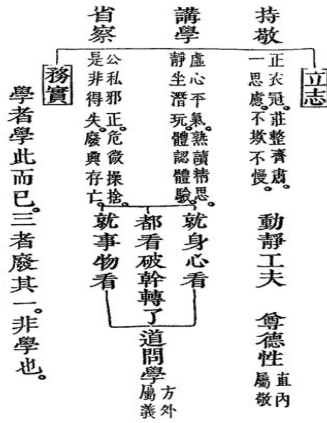 持敬
講學
省察
立志
正衣冠。莊整齊肅。
一思慮。不欺不慢。
動靜工夫
尊德性
直內
屬敬
虛心平氣。熟讀精思。
靜坐潛玩。體認體驗。
就身心看
都看破幹轉了
就事物看
道問學
方外
屬義
公私邪正。危微操捨。
是非得失。廢興存亡。
務實
學者學此而已。三者廢其一。非學也。